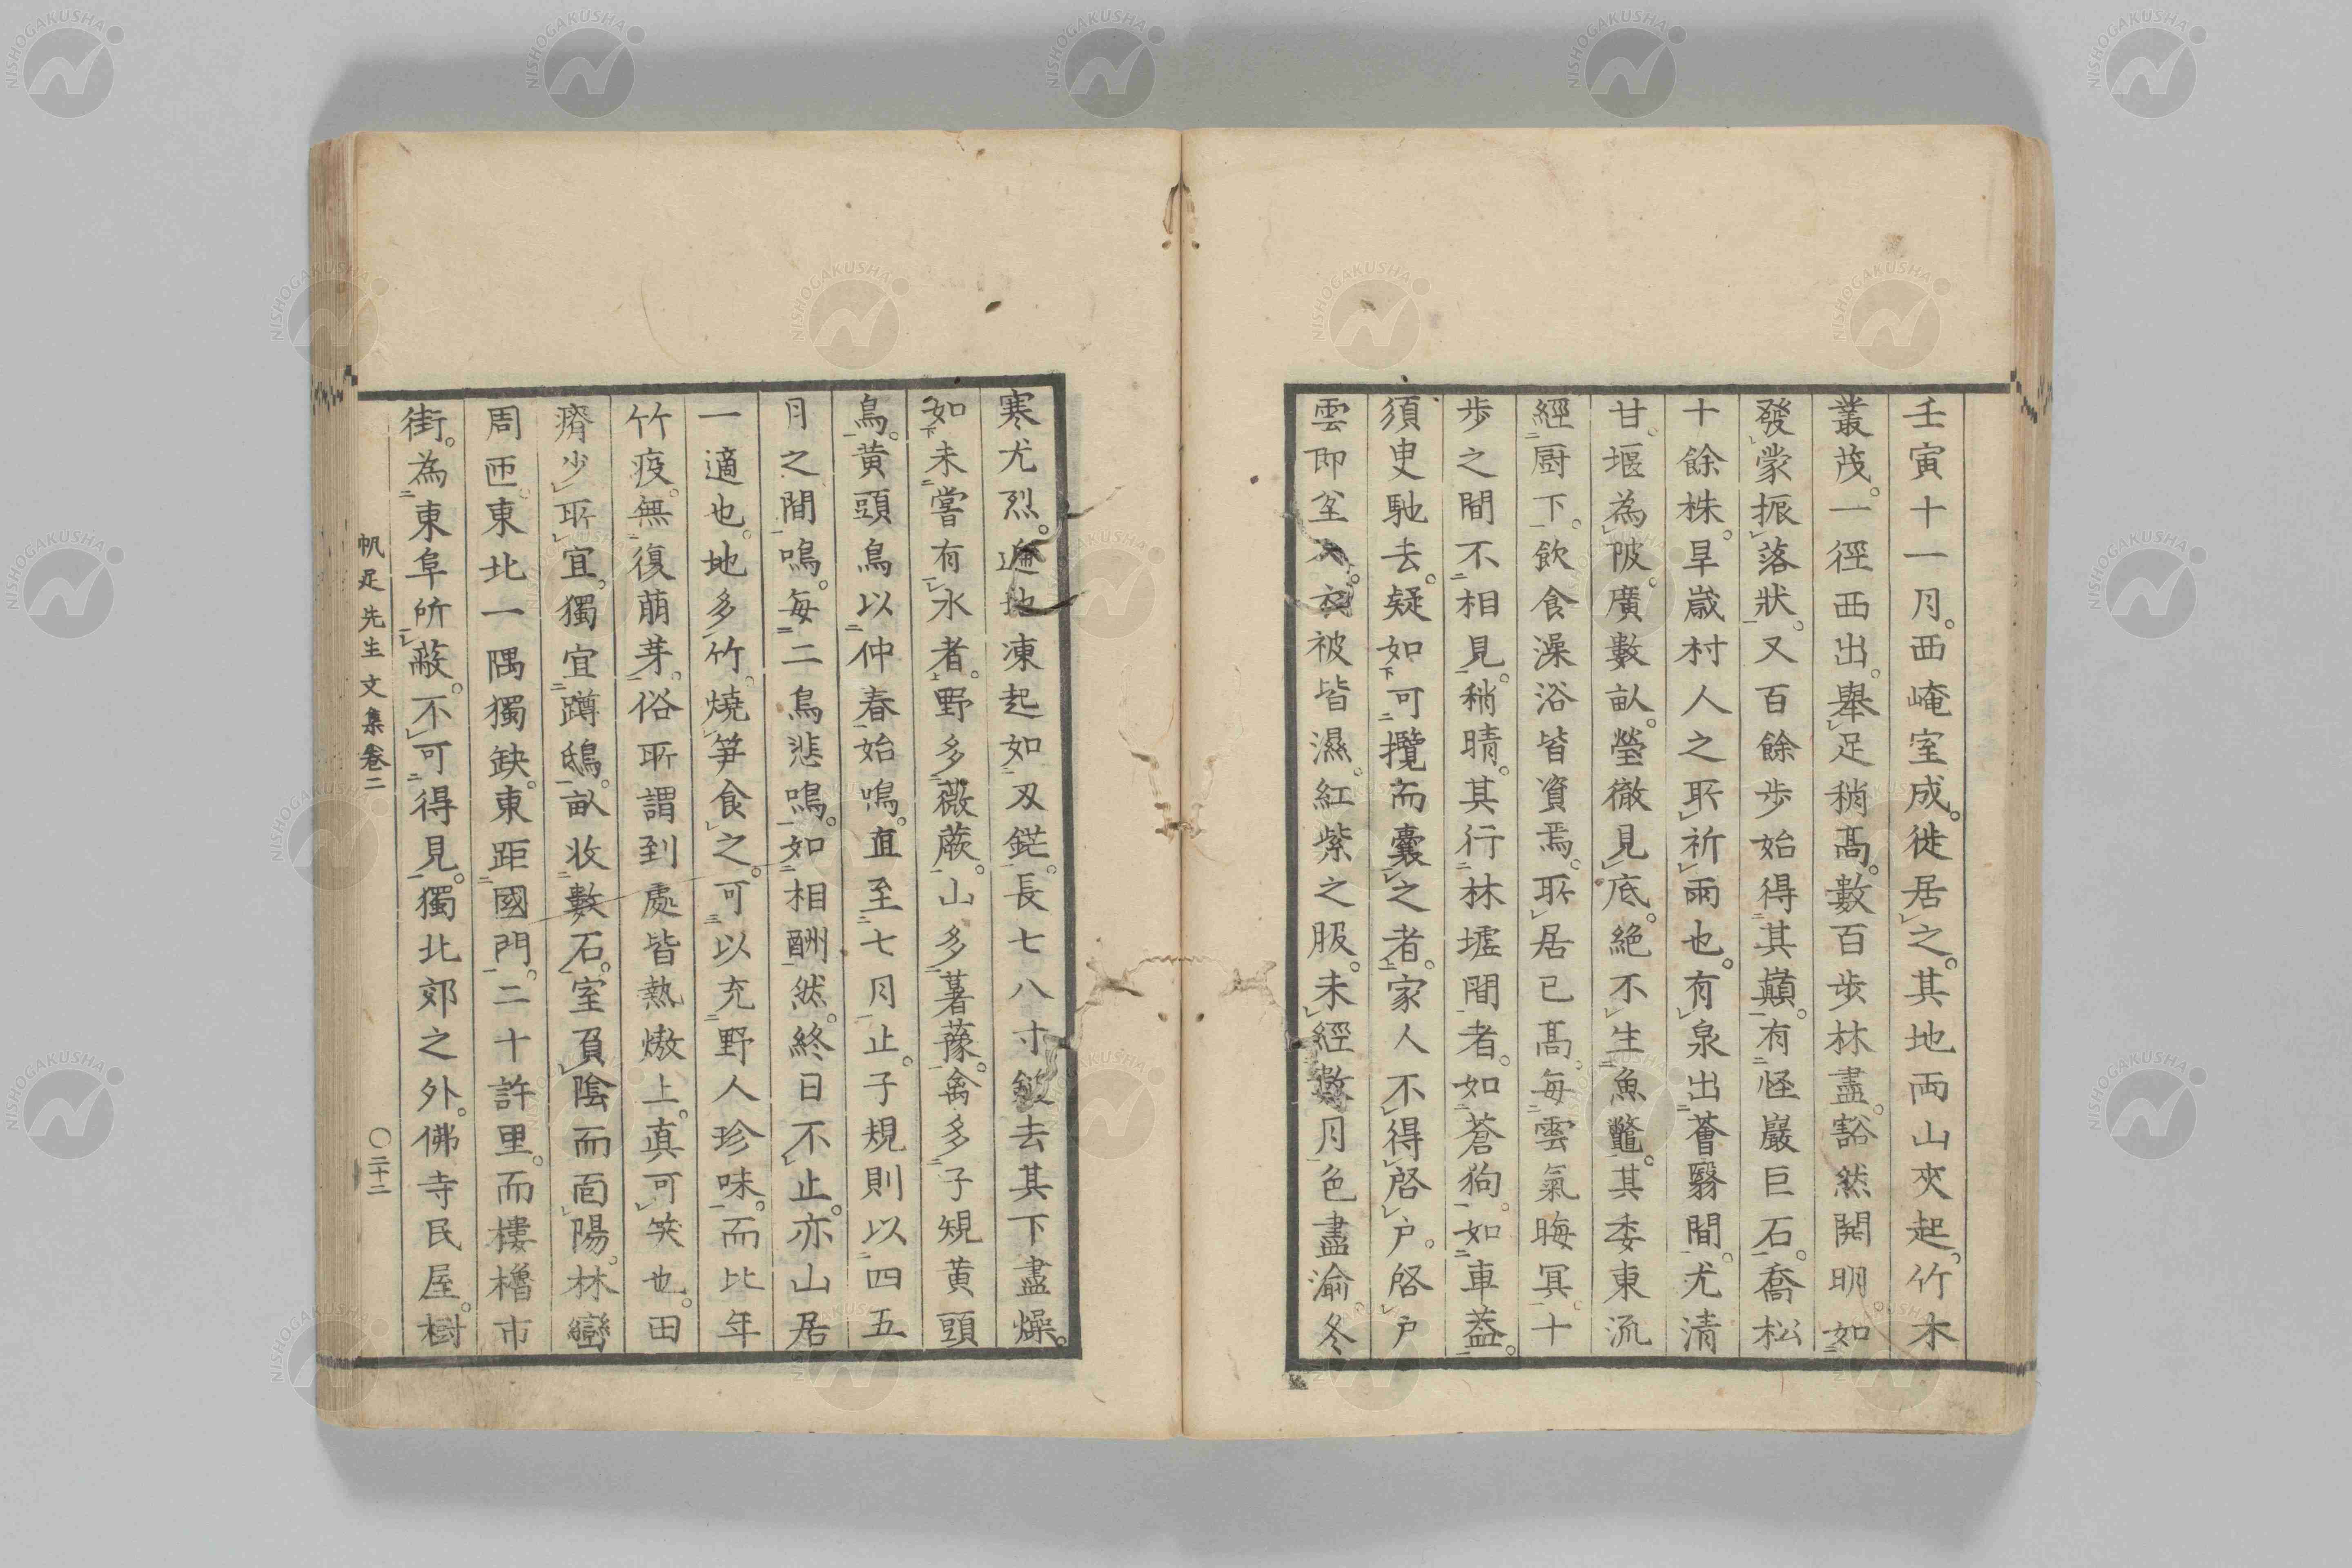 壬寅十一月。西崦室成。徙居之。其地両山夾起。竹木
叢茂。一徑西出。舉足稍髙。數百步林盡。豁然開明如
發蒙振落狀。又百餘步始得其巔。有怪巖巨石。喬松
十餘株。旱歳村人之所祈雨也。有泉出薈翳間。尤清
甘。堰為陂。廣數畝。瑩徹見底。絶不生魚鼈。其委東流
經厨下。飲食澡浴皆資焉。所居已髙。每雲氣晦冥。十
步之間不相見。稍晴。其行林墟間者。如蒼狗。如車葢。
須臾馳去。疑如可攬而囊之者。家人不得啓户。啓户
雲即至入。衣被皆濕。紅紫之服。未經數月色盡渝。冬
寒尤烈。遍地凍起如刄鋩。長七八寸。鈹去其下盡燥。
如未嘗有水者。野多薇蕨。山多薯蕷。禽多子規黄頭
鳥。黄頭鳥以仲春始鳴。直至七月止。子規則以四五
月之間鳴。每二鳥悲鳴。如相酬然。終日不止。亦山居
一適也。地多竹。燒笋食之。可以充野人珍味。而比年
竹疫。無復萠芽。俗所謂到處皆熱熬上。真可笑也。田
瘠少所宜。獨宜蹲鴟。畝收數石。室負陰而面陽。林巒
周匝。東北一隅獨缺。東距國門。二十許里。而樓櫓市
街。為東阜所蔽。不可得見。獨北郊之外。佛寺民屋。樹
帆足先生文集卷二
〇二十二
NISHOGAKUSHA